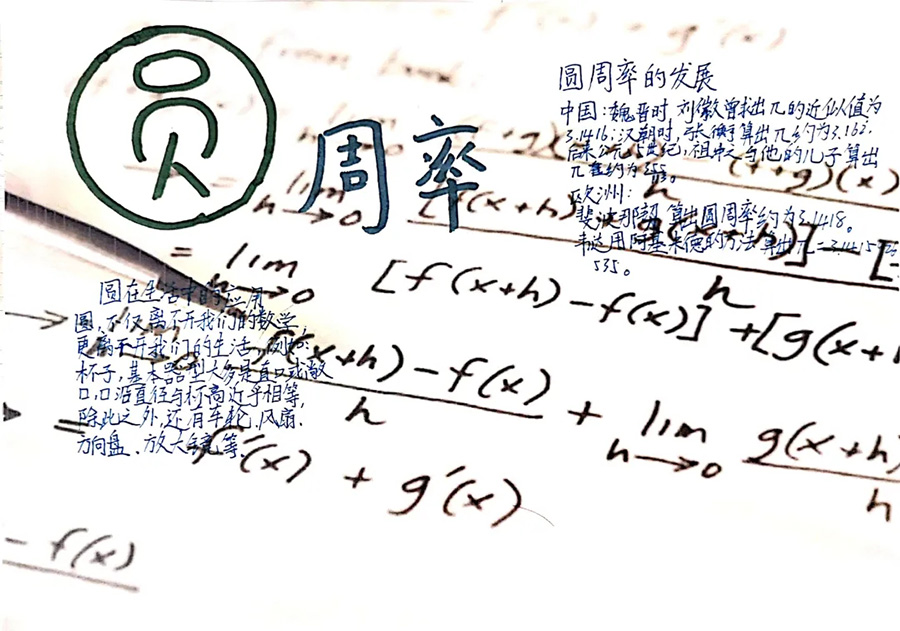 圆周率
圆周率的发展
中国:魏晋时,刘徽曾求出π的近似值为
3.1416;汉朝时,张衡算出π约为3.162.
后来公元5世纪,祖冲之与他的儿子算出
π
欧洲:
斐波那契算出圆周率约为3.1418。
韦达用阿基米德的方法算出π=3.1415
535。
圆在生活中的应用
圆,不仅离不开我们的数学,
更离不开我们的生活,例如:
杯子,基本器型大多是直口或敞
口,口沿直径与杯高近乎相等,
除此之外,还有车轮、风扇、
方向盘、放大镜等。
= lim h→0 [f(x+h) − f(x)] + [g(x+h
f(x+h) − f(x)
h
+ lim h→0 g(x+h)
h
= f′(x) + g′(x)
− f(x)